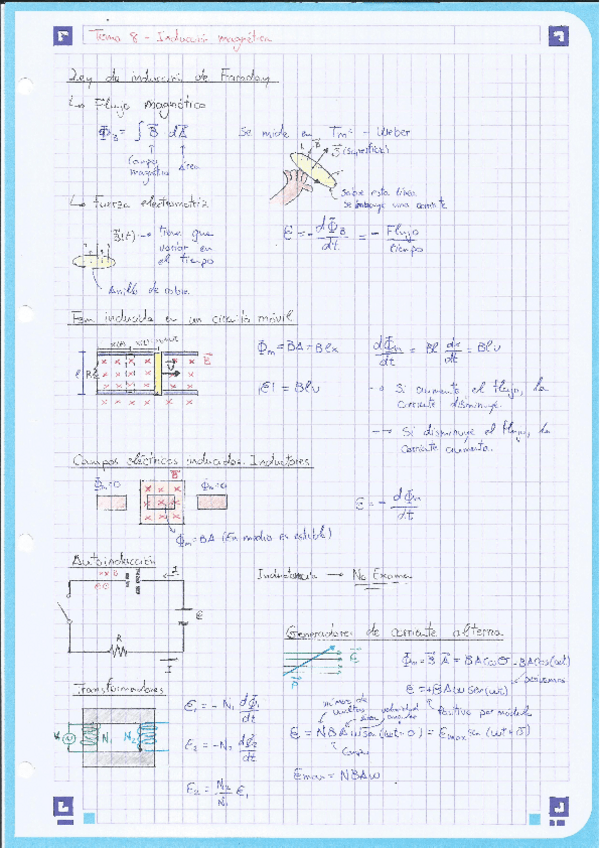 Tema 8 - Inducción magnética
Ley de inducción de Faraday
↳ Flujo magnético
Φ_B = ∫ B⃗ dA⃗
Campo magnético
área
Se mide en Tm² - Weber
S⃗ (superficie)
Sobre esta línea
se induce una corriente
↳ Fuerza electromotriz
B⃗(t) → tiene que
variar en
el tiempo
Anillo de cobre
ε = - dΦ_B/dt = - Flujo/tiempo
Fem inducida en un circuito móvil
Φm = BA = Blx
dΦm/dt = Bl dx/dt = Blv
|ε| = Blv
→ Si aumenta el flujo, la
corriente disminuye.
→ Si disminuye el flujo, la
corriente aumenta.
Campos eléctricos inducidos. Inductores
Φm=0
B⃗
Φm=0
ε = - dΦm/dt
Φm = BA (En medio es estable)
Autoinducción
I
ε
R
I
Inductancia → No Examen
Generadores de corriente alterna
Φm = B⃗ A⃗ = BA cos θ = BA cos(ωt)
derivamos
ε = +BAω sen(ωt)
Positivo por módulo
Transformadores
N₁ N₂
ε₁ = -N₁ dΦ₁/dt
ε₂ = -N₂ dΦ₂/dt
ε₂ = N₂/N₁ ε₁
número de
vueltas
área
velocidad
angular
Campo
εmax = NBAω